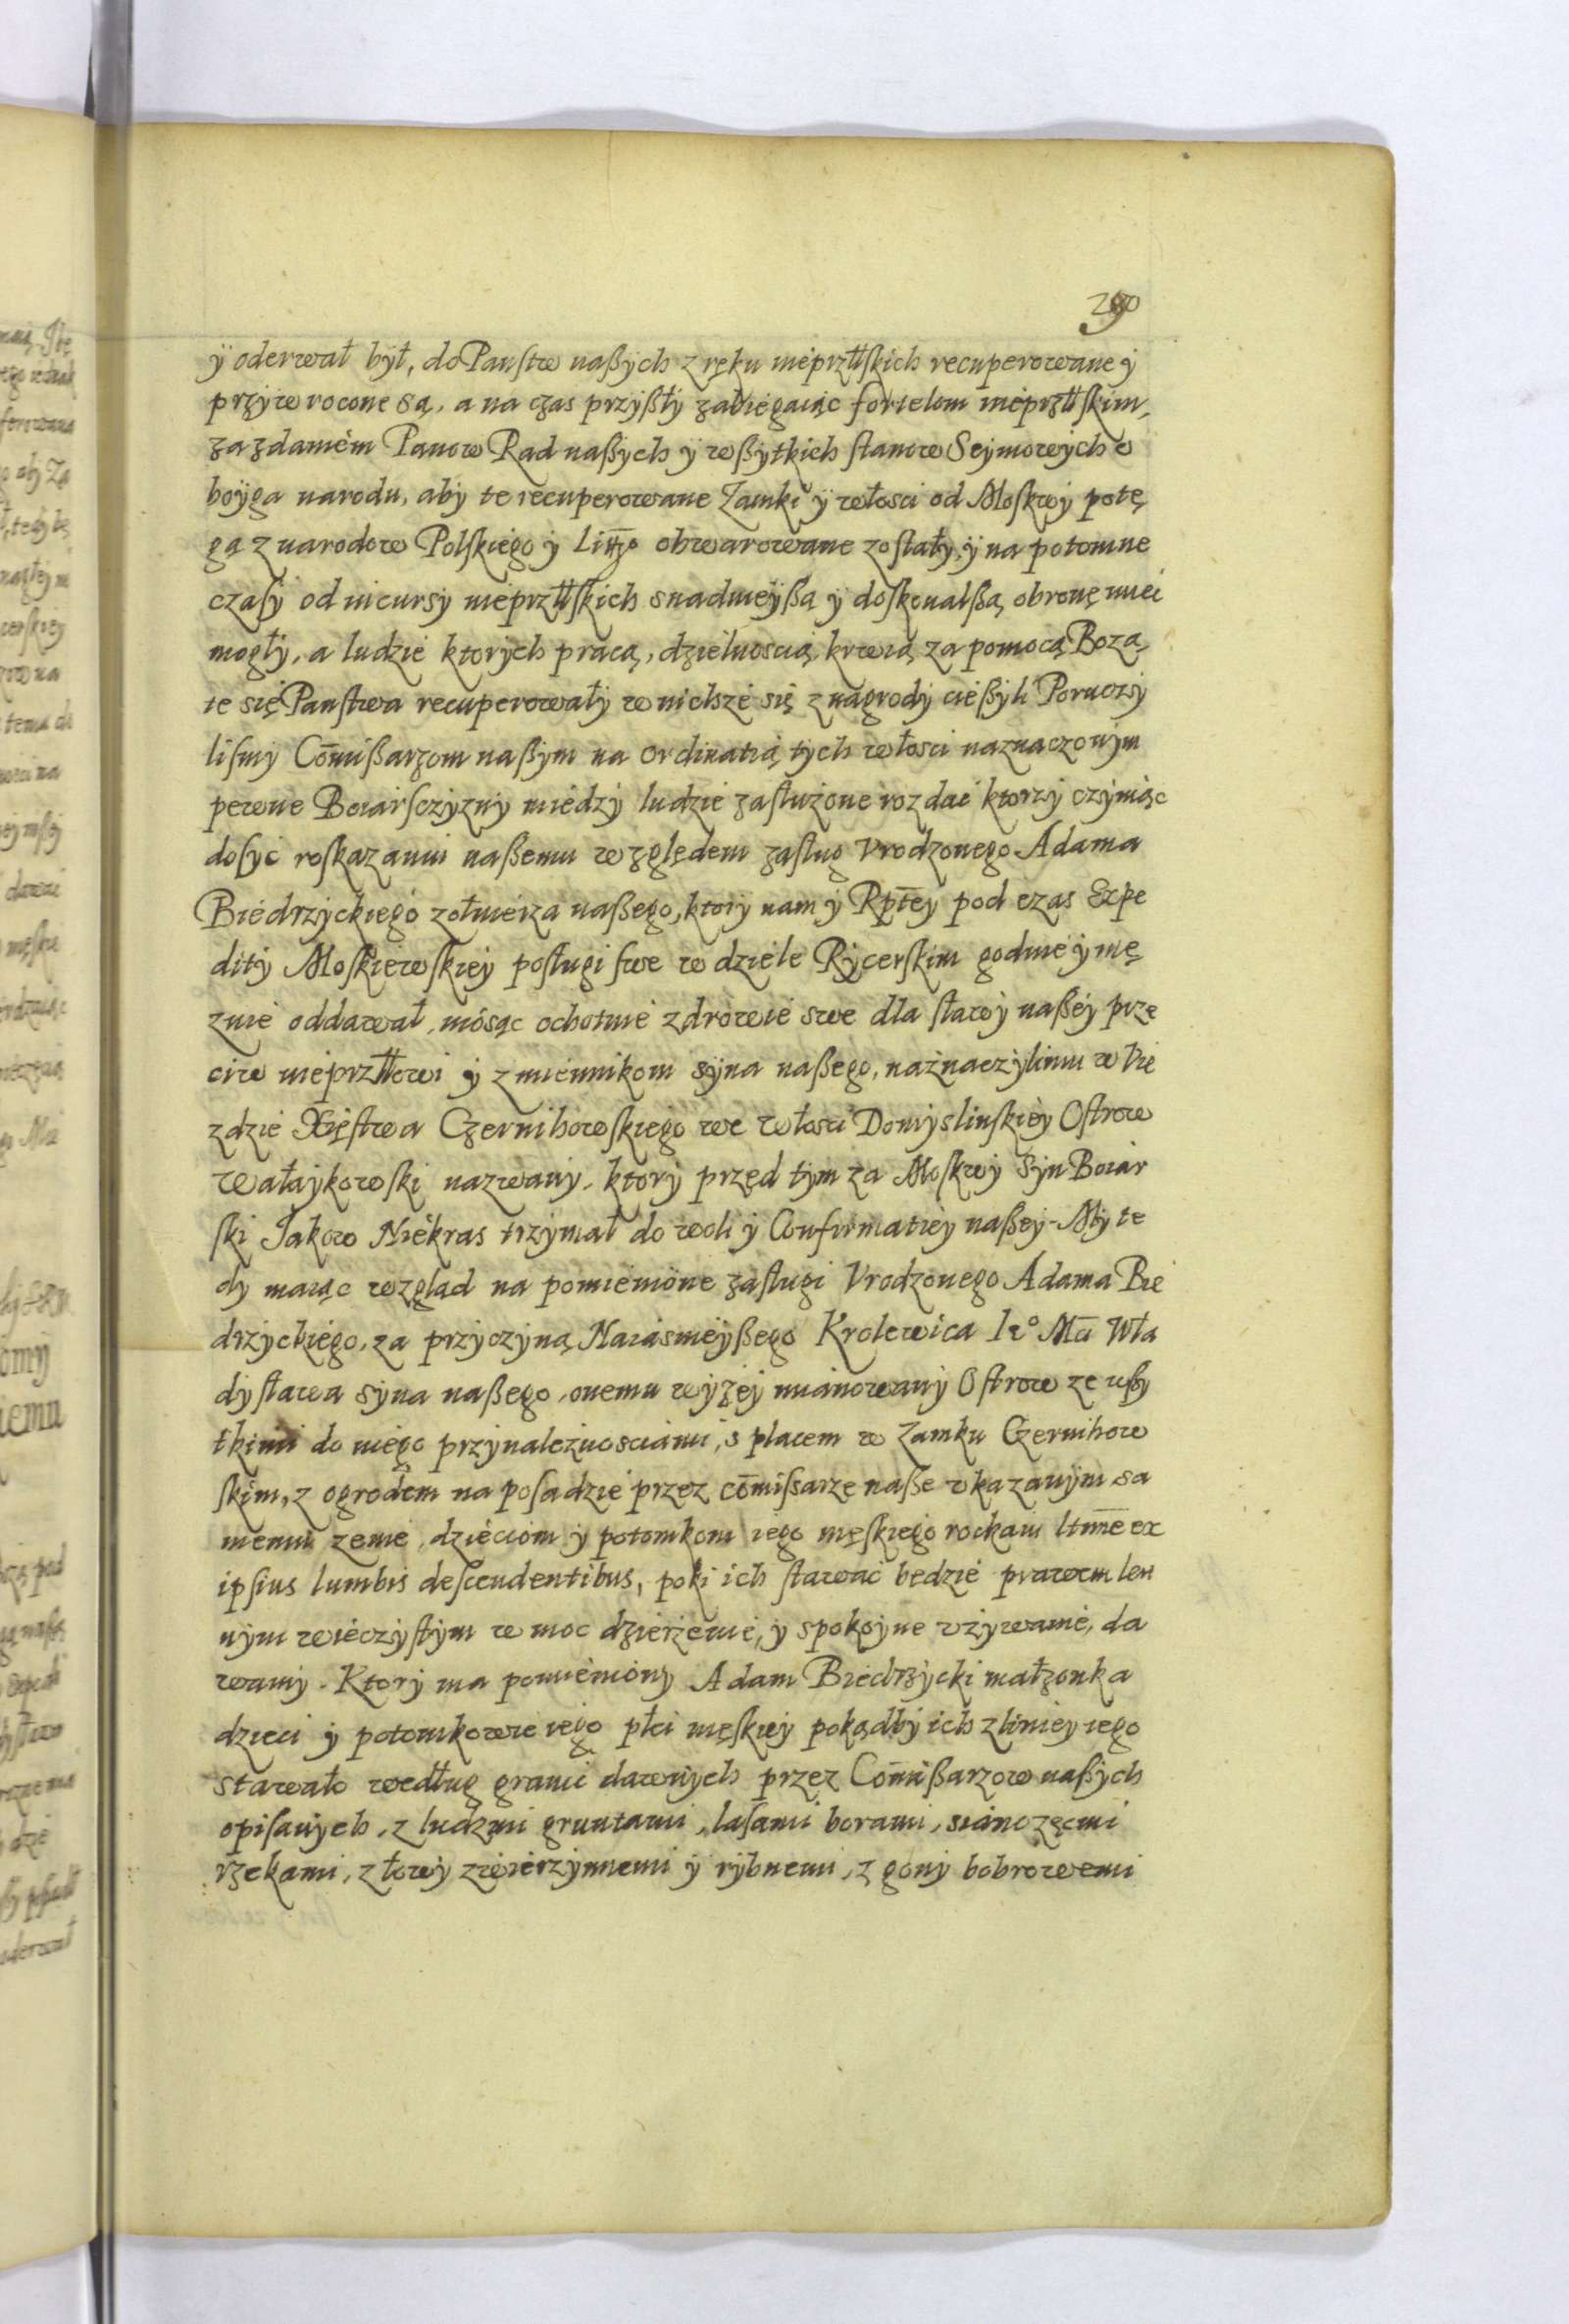 290
ÿ oderwał był, do Panſtw naßych z ręku nieprzłłſkich recuperowane ÿ
przÿwrocone są, a na czas przÿßłÿ zabiegaiąc fortelom nieprzłłſkim,
za zdaniem Panow Rad naßych ÿ wßÿtkich ſtanow Seÿmowÿch o
boÿga narodu, abÿ te recuperowane Zamki ÿ włosci od Moſkwÿ potę
gą z narodow Polſkiego ÿ Littgo obwarowane zoſtałÿ, ÿ na potomne
czaſÿ od incursÿ nieprzłłſkich snadnieÿßą ÿ doſkonalßą obronę mieć
mogłÿ, a ludzie ktorÿch pracą, dzielnoscią, krwią za pomocą Bozą,
te się Panſtwa recuperowałÿ w nichze się z nagrody cießÿli Poruczÿ
liſmÿ Com̄ißarzom naßym na ordinatią tÿch włosci naznaczonÿm
pewne Boiarſczÿznÿ miedzÿ ludzie zaſłużone rozdać ktorzÿ czÿniąc
doſyc roſkazaniu naßemu względem zaſlug Vrodzonego Adama
Biedrzÿckiego zołnierza naßego, ktorÿ nam ÿ Rptēy pod czas Expe
ditÿ Moſkiewſkieÿ poſlugi ſwe w dziele Rÿcerſkim godnie ÿ mę
znie oddawał, niosąc ochotnie zdrowie swe dla ſławÿ naßeÿ prze
ciw nieprzłłowi ÿ zmiennikom sÿna naßego, naznaczÿli mu w Vie
zdzie Xięſtwa Czernihowſkiego we włosci Domÿslinſkieÿ Oſtrow
Wałaÿkowſki nazwanÿ, ktorÿ przed tÿm za Moſkwÿ Sÿn Boiar
ſki Jakow Niekras trzÿmał do woli ÿ Confirmatieÿ naßeÿ. Mÿ te
dÿ maiąc wzgląd na pomienione zaſlugi Vrodzonego Adama Bie
drzÿckiego, za przÿczÿną Naiasnieÿßego Krolewica Ie° Mci Wła
dÿſława sÿna naßego, onemu wÿżeÿ mianowanÿ Oſtrow ze wßy
tkimi do niego przÿnależnosciami, s placem w Zamku Czernihow
ſkim, z ogrodem na poſadzie przez com̄iſsarze naße vkazanÿm sa
memu zenie, dzieciom ÿ potomkom iego męſkiego rodzaiu ltm̄e ex
ipſius lumbis deſcendentibus, poki ich ſtawać bedzie prawem len
nÿm wieczÿſtÿm w moc dzierżenie, ÿ spokoÿne vżÿwanie, da
wamÿ. Ktorÿ ma pomienionÿ Adam Biedrzÿcki małzonka
dzieci ÿ potomkowie iego płci męſkieÿ pokądbÿ ich z linieÿ iego
stawało według granic dawnÿch przez Com̄ißarzow naßych
opiſanÿch, z ludzmi gruntami, laſami borami, sianozęcmi
rzekami, z łowÿ zwierzÿnnemi ÿ rÿbnemi, z gonÿ bobrowemi